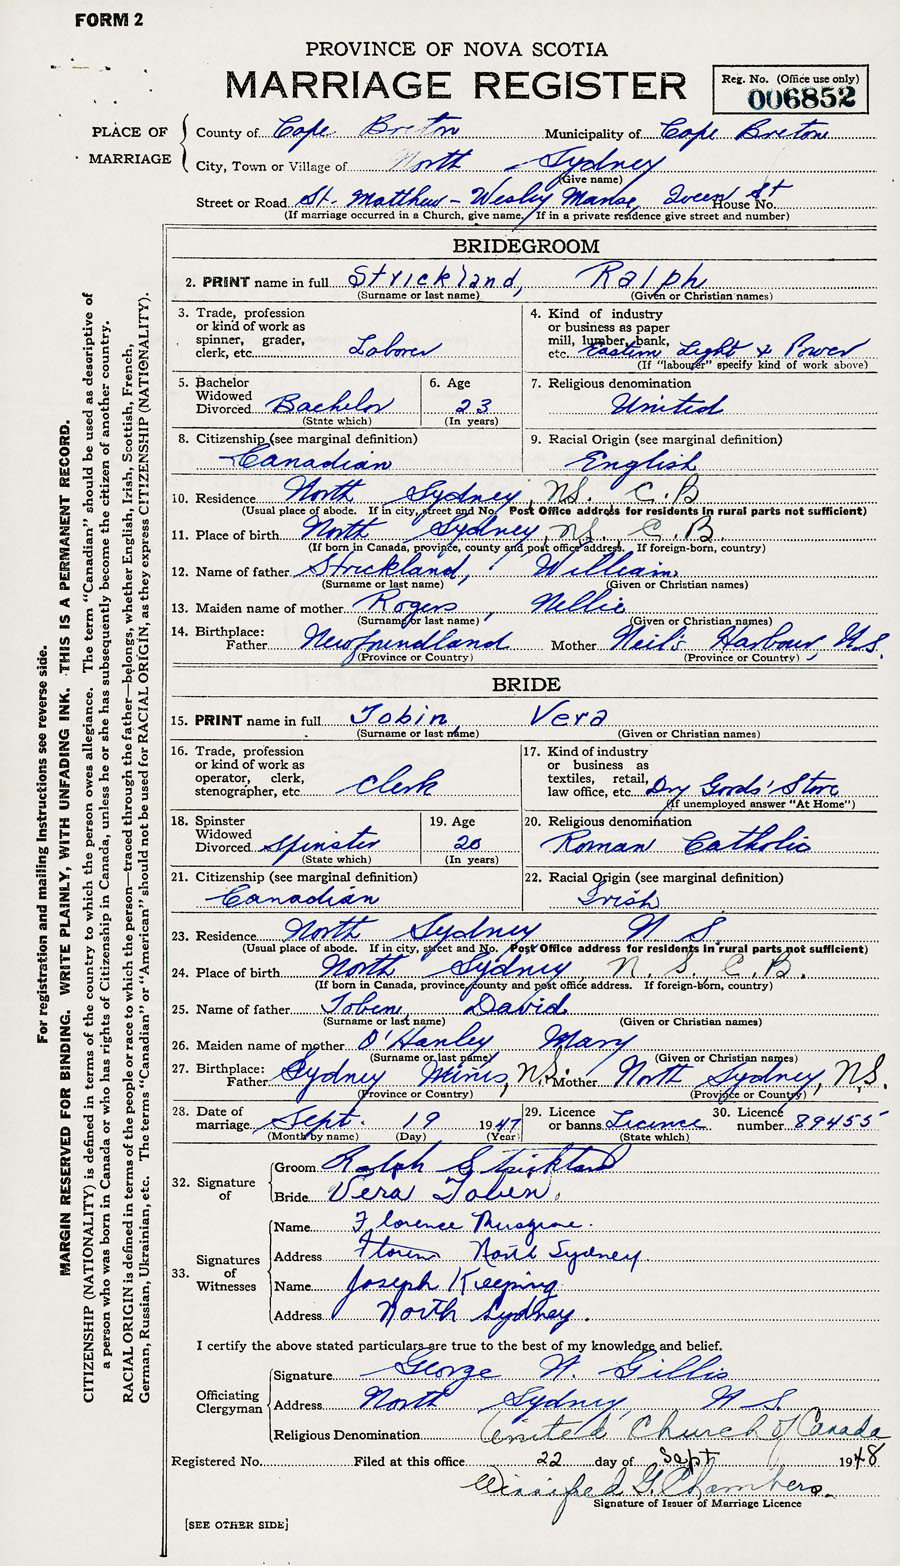 FORM 2
PROVINCE OF NOVA SCOTIA
MARRIAGE REGISTER
Reg. No. (Office use only)
006852
PLACE OF MARRIAGE
County of Cape Breton Municipality of Cape Breton
City, Town or Village of North Sydney
(Give name)
Street or Road St. Matthew - Wesley Manse, Queen St House No.
(If marriage occurred in a Church, give name. If in a private residence give street and number)
BRIDEGROOM
2. PRINT name in full Strickland, Ralph
(Surname or last name) (Given or Christian names)
3. Trade, profession
or kind of work as
spinner, grader,
clerk, etc. Laborer
4. Kind of industry
or business as paper
mill, lumber, bank,
etc. Eastern Light & Power
(If "labourer" specify kind of work above)
5. Bachelor
Widowed
Divorced Bachelor
(State which)
6. Age
23
(In years)
7. Religious denomination
United
8. Citizenship (see marginal definition)
Canadian
9. Racial Origin (see marginal definition)
English
10. Residence North Sydney, N.S. C.B
(Usual place of abode. If in city, street and No. Post Office address for residents in rural parts not sufficient)
11. Place of birth North Sydney, N.S. C.B.
(If born in Canada, province, county and post office address. If foreign-born, country)
12. Name of father Strickland, William
(Surname or last name) (Given or Christian names)
13. Maiden name of mother Rogers, Nellie
(Surname or last name) (Given or Christian names)
14. Birthplace:
Father Newfoundland Mother Neil's Harbour, N.S.
(Province or Country) (Province or Country)
BRIDE
15. PRINT name in full Tobin, Vera
(Surname or last name) (Given or Christian names)
16. Trade, profession
or kind of work as
operator, clerk,
stenographer, etc. Clerk
17. Kind of industry
or business as
textiles, retail,
law office, etc. Dry Goods' Store
(If unemployed answer "At Home")
18. Spinster
Widowed
Divorced Spinster
(State which)
19. Age
20
(In years)
20. Religious denomination
Roman Catholic
21. Citizenship (see marginal definition)
Canadian
22. Racial Origin (see marginal definition)
Irish
23. Residence North Sydney N S.
(Usual place of abode. If in city, street and No. Post Office address for residents in rural parts not sufficient)
24. Place of birth North Sydney N. S. C.B.
(If born in Canada, province, county and post office address. If foreign-born, country)
25. Name of father Toben, David
(Surname or last name) (Given or Christian names)
26. Maiden name of mother O'Hanley Mary
(Surname or last name) (Given or Christian names)
27. Birthplace:
Father Sydney Mines, N.S. Mother North Sydney, N.S.
(Province or Country) (Province or Country)
28. Date of
marriage Sept. 19 1947
(Month by name) (Day) (Year)
29. Licence
or banns Licence
(State which)
30. Licence
number 89455
32. Signature of
Groom Ralph Strickland
Bride Vera Toben.
33. Signatures of Witnesses
Name Florence Musgrave.
Address North Sydney
Name Joseph Keeping
Address North Sydney.
I certify the above stated particulars are true to the best of my knowledge and belief.
Officiating Clergyman
Signature George W. Gillis
Address North Sydney N S.
Religious Denomination United Church of Canada
Registered No. Filed at this office 22 day of Sept 1948
Winnifred G. Chambers
Signature of Issuer of Marriage Licence
[SEE OTHER SIDE]
For registration and mailing instructions see reverse side.
MARGIN RESERVED FOR BINDING. WRITE PLAINLY, WITH UNFADING INK. THIS IS A PERMANENT RECORD.
CITIZENSHIP (NATIONALITY) is defined in terms of the country to which the person owes allegiance. The term "Canadian" should be used as descriptive of
a person who was born in Canada or who has rights of Citizenship in Canada, unless he or she has subsequently become the citizen of another country.
RACIAL ORIGIN is defined in terms of the people or race to which the person—traced through the father—belongs, whether English, Irish, Scottish, French,
German, Russian, Ukrainian, etc. The terms "Canadian" or "American" should not be used for RACIAL ORIGIN, as they express CITIZENSHIP (NATIONALITY).